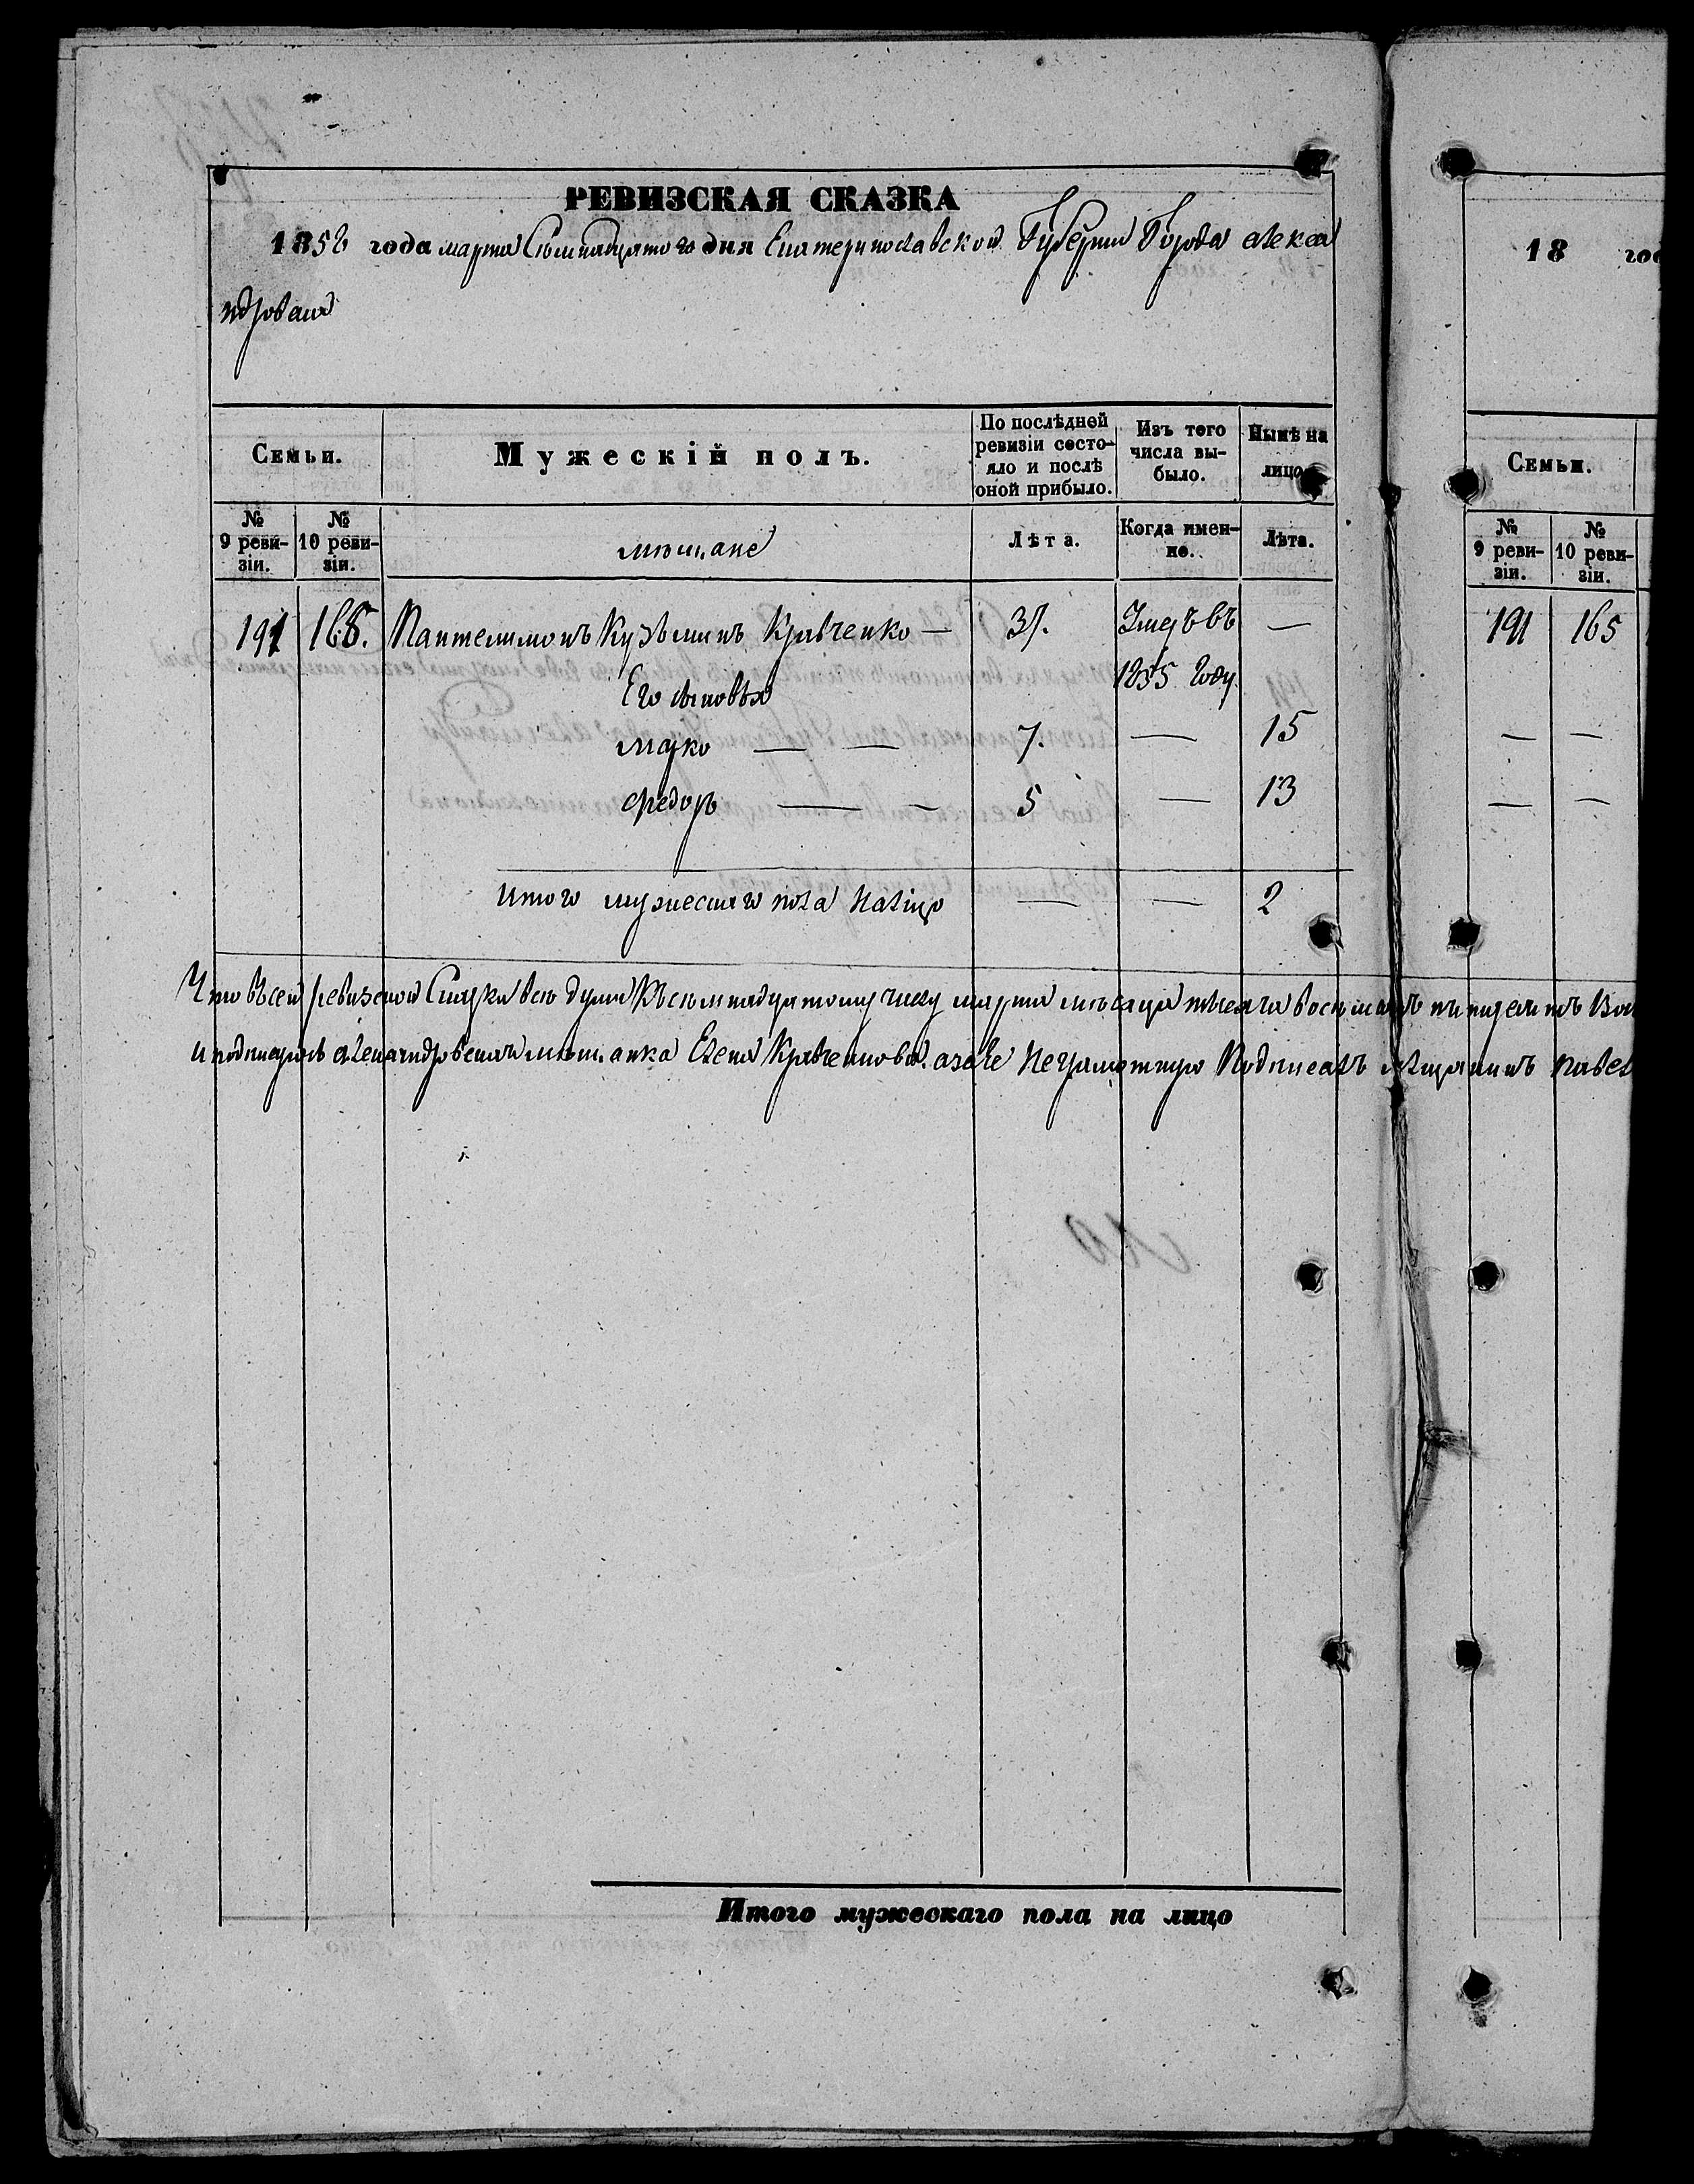 РЕВИЗСКАЯ СКАЗКА
1858 года марта Семнадцатого дня Екатеринославской Губернии Города Алекса
ндровска
Семьи.
Мужескій полъ.
По послѣдней ревизіи состо-
яло и послѣ
оной прибыло.
Изъ того
числа вы-
было.
Нынѣ на
лицо
№
9 реви-
зіи.
№
10 реви-
зіи.
мѣщане
Лѣта.
Когда имен-
но.
Лѣта.
191 165. Пантелимонъ Кузьминъ Кравченко — 37. Умеръ въ —
1855 году.
Его сыновья
Марко — — 7. — 15
Федоръ — — 5 — 13
Итого мужескаго пола налицо — — 2
Что въ сей ревизской Сказки всѣ души Къ семнадцатому числу марта мѣсяца
и Александровская мѣщанка Елена Кравченкова. а за Неграмотную Подписалъ мѣщанинъ Павел
Итого мужескаго пола на лицо
18 год
Семьи.
№
9 реви-
зіи.
№
10 реви-
зіи.
191 165
— —
— —